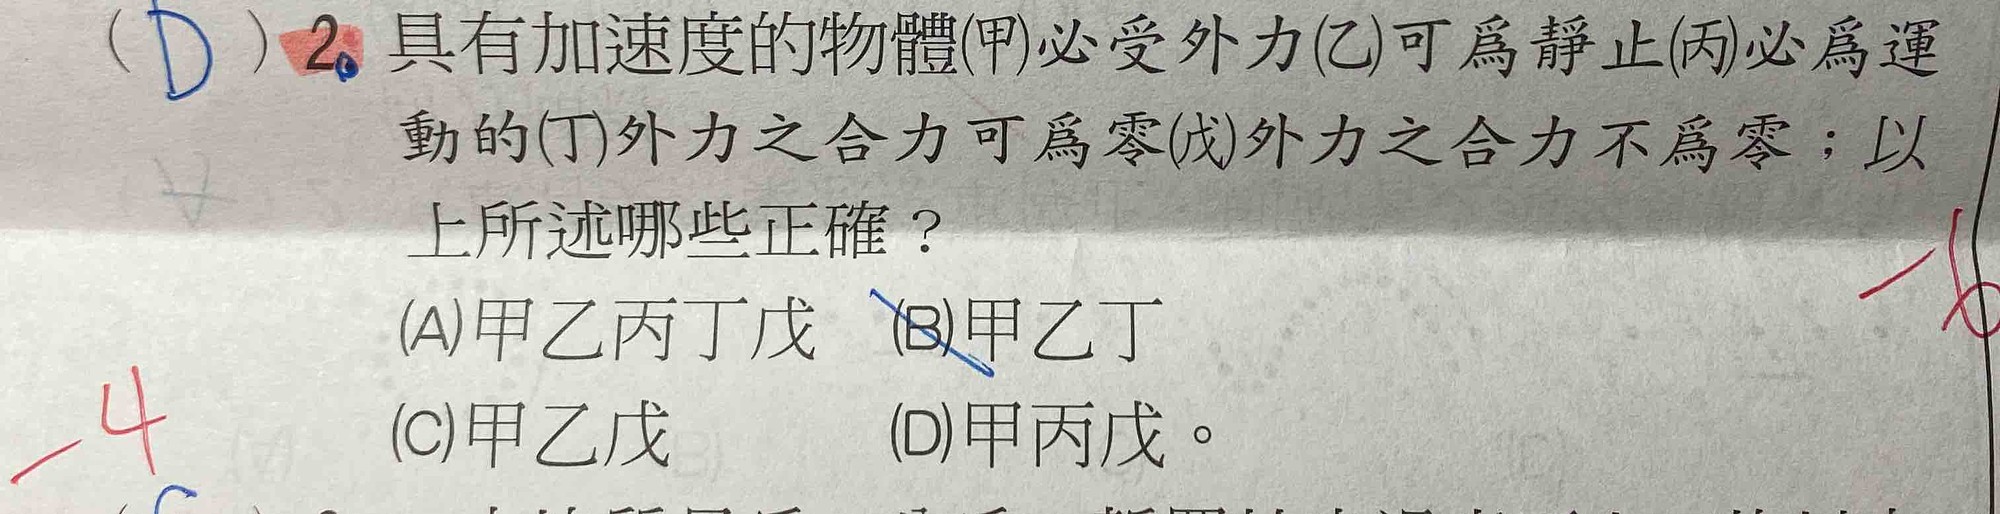 (D) 2. 具有加速度的物體(甲)必受外力(乙)可爲靜止(丙)必爲運
動的(丁)外力之合力可爲零(戊)外力之合力不爲零；以
上所述哪些正確？
(A)甲乙丙丁戊 (B)甲乙丁
-6
(C)甲乙戊 (D)甲丙戊。
-4